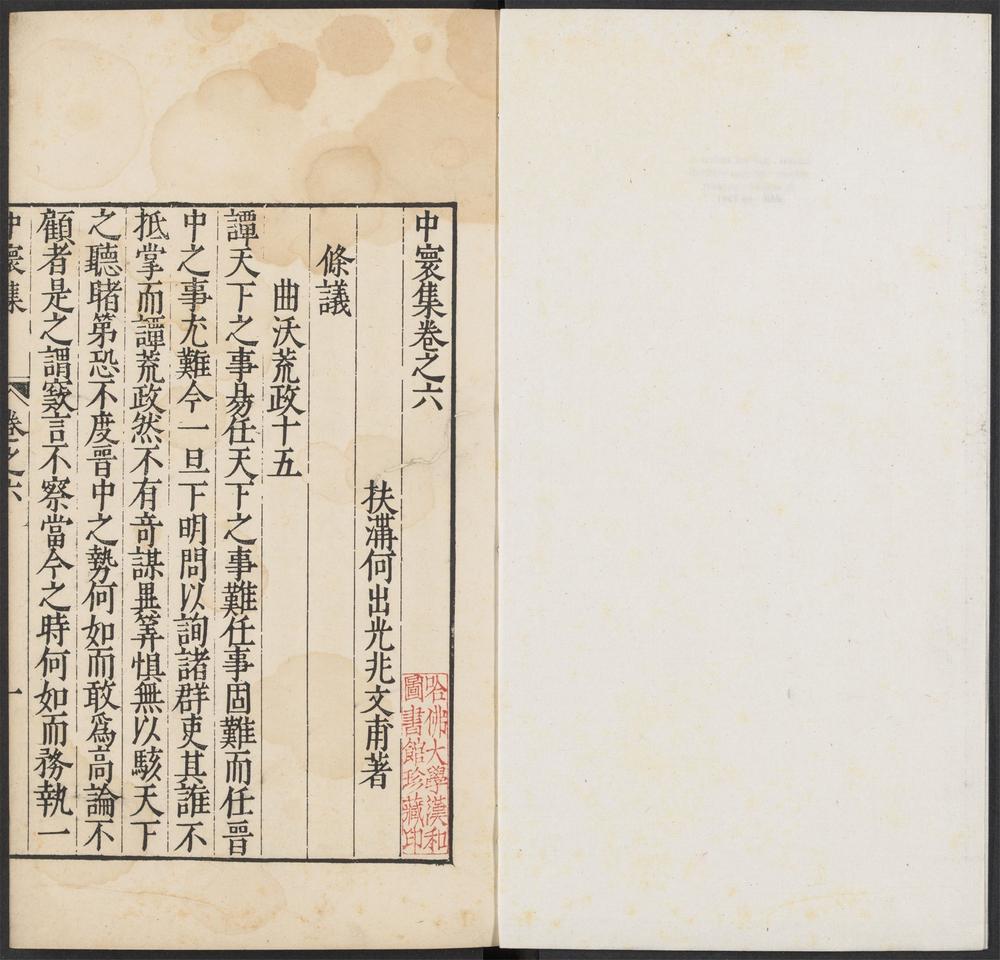 中寰集卷之六
扶溝何出光兆文甫著
條議
曲沃荒政十五
譚天下之事易任天下之事難任事固難而任晉
中之事尤難今一旦下明問以詢諸群吏其誰不
抵掌而譚荒政然不有奇謀異筭惧無以駭天下
之聽睹第恐不度晉中之勢何如而敢爲高論不
顧者是之謂窽言不察當今之時何如而務執一
中寰集
卷之六
一
哈佛大學漢和
圖書館珍藏印